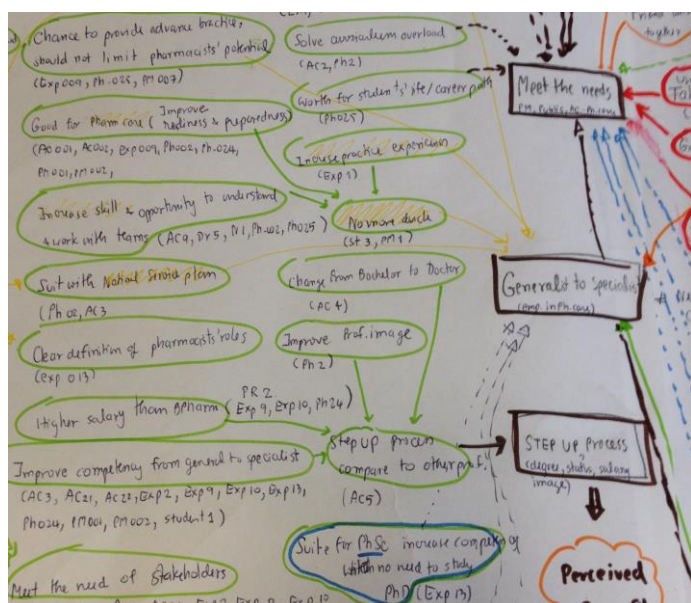 Chance to provide advance practice,
should not limit pharmacists' potential
(Exp009, Ph-025, PM007)
Good for pharm care (Improve
rediness & preparedness)
(AC001, AC002, Exp009, Ph002, Ph-024,
Ph001, PM002,
Increase skill & opportunity to understand
& work with teams (AC9, Dr5, N1, Ph-002, Ph025)
Suit with National Service plan
(Ph 02, AC3
Clear definition of pharmacists' roles
(exp 013)
Higher salary than BPharm (PR2.
Exp9, Exp10, Ph24)
Improve competency from general to specialist
(AC3, AC21, AC22, Exp2, Exp9, Exp10, Exp13,
Ph024, PM001, PM002, student1)
Meet the need of stakeholders
Solve curriculum overload
(AC2, Ph2)
Worth for students' life/career path
(Ph025)
Increase practice experiences
(Exp1)
No more
(St3, PM1)
Change from Bachelor to Doctor
(AC4)
Improve Prof. image
(Ph2)
Step up process
compare to other prof.
(AC5)
Suite for PhSc increase competency
no need to study
PhD (Exp13)
Meet the needs
Generalist to specialist
(emp. in Ph. care)
STEP UP PROCESS
(degree, status, salary
image)
Perceived
together